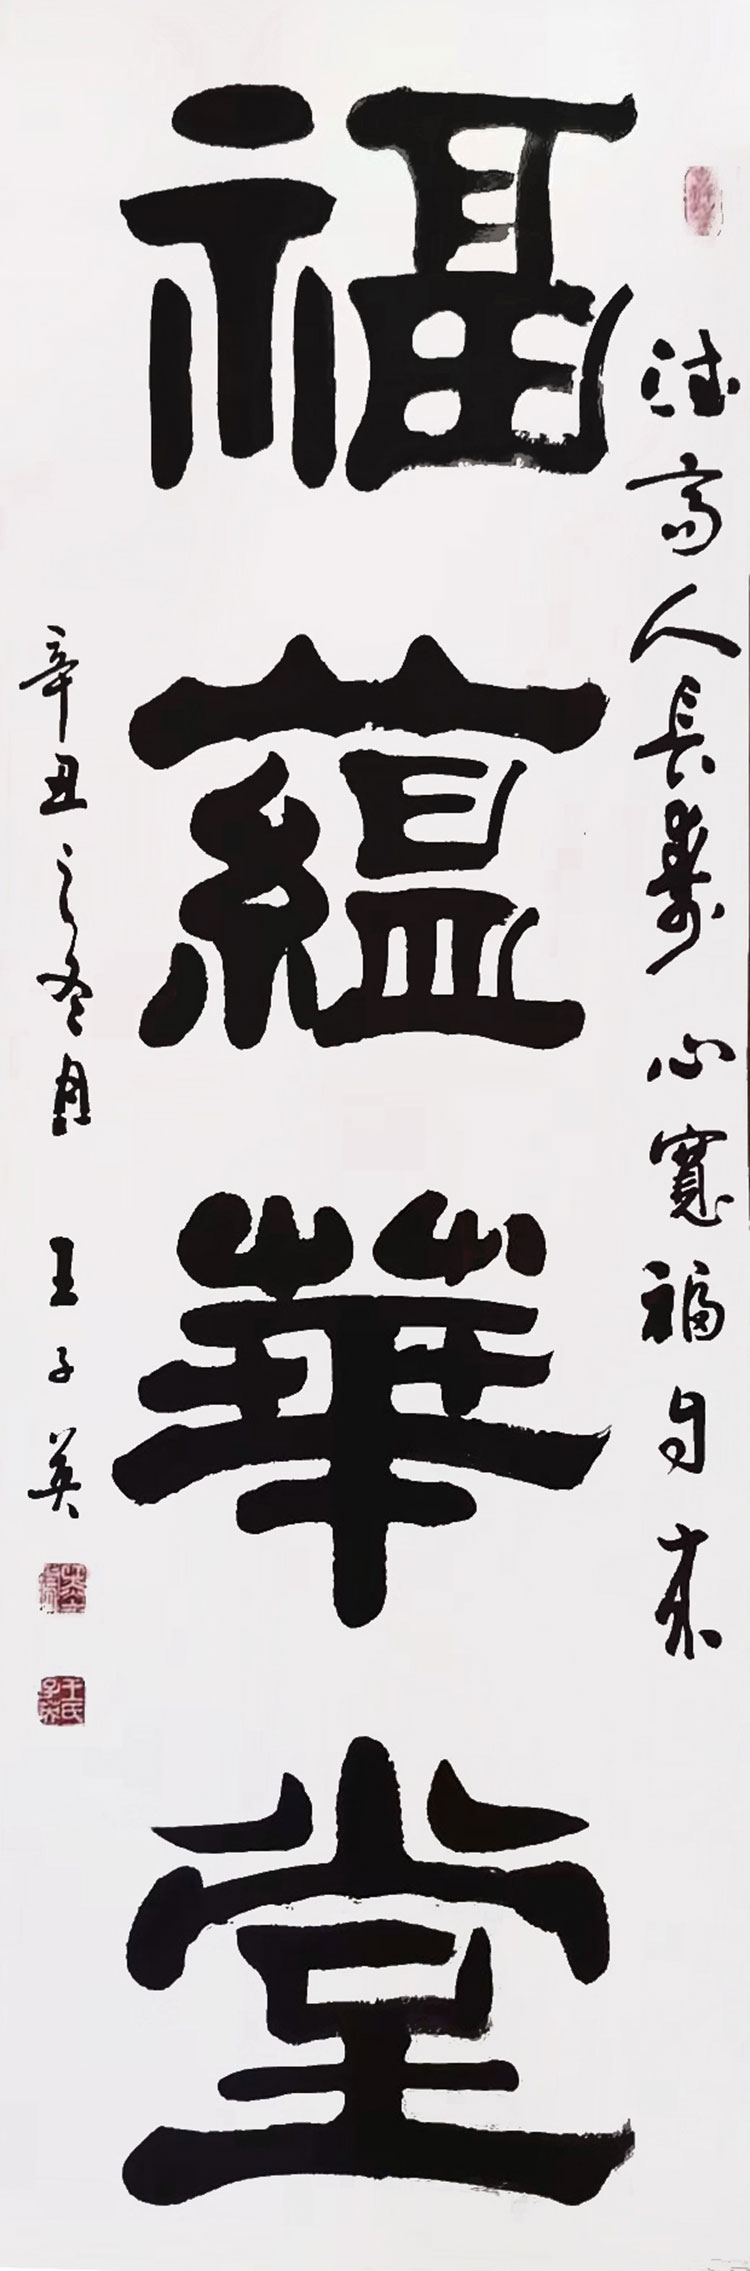 德高人長壽 心寬福自來
福蘊華堂
辛丑之冬月 王子英
王氏子英